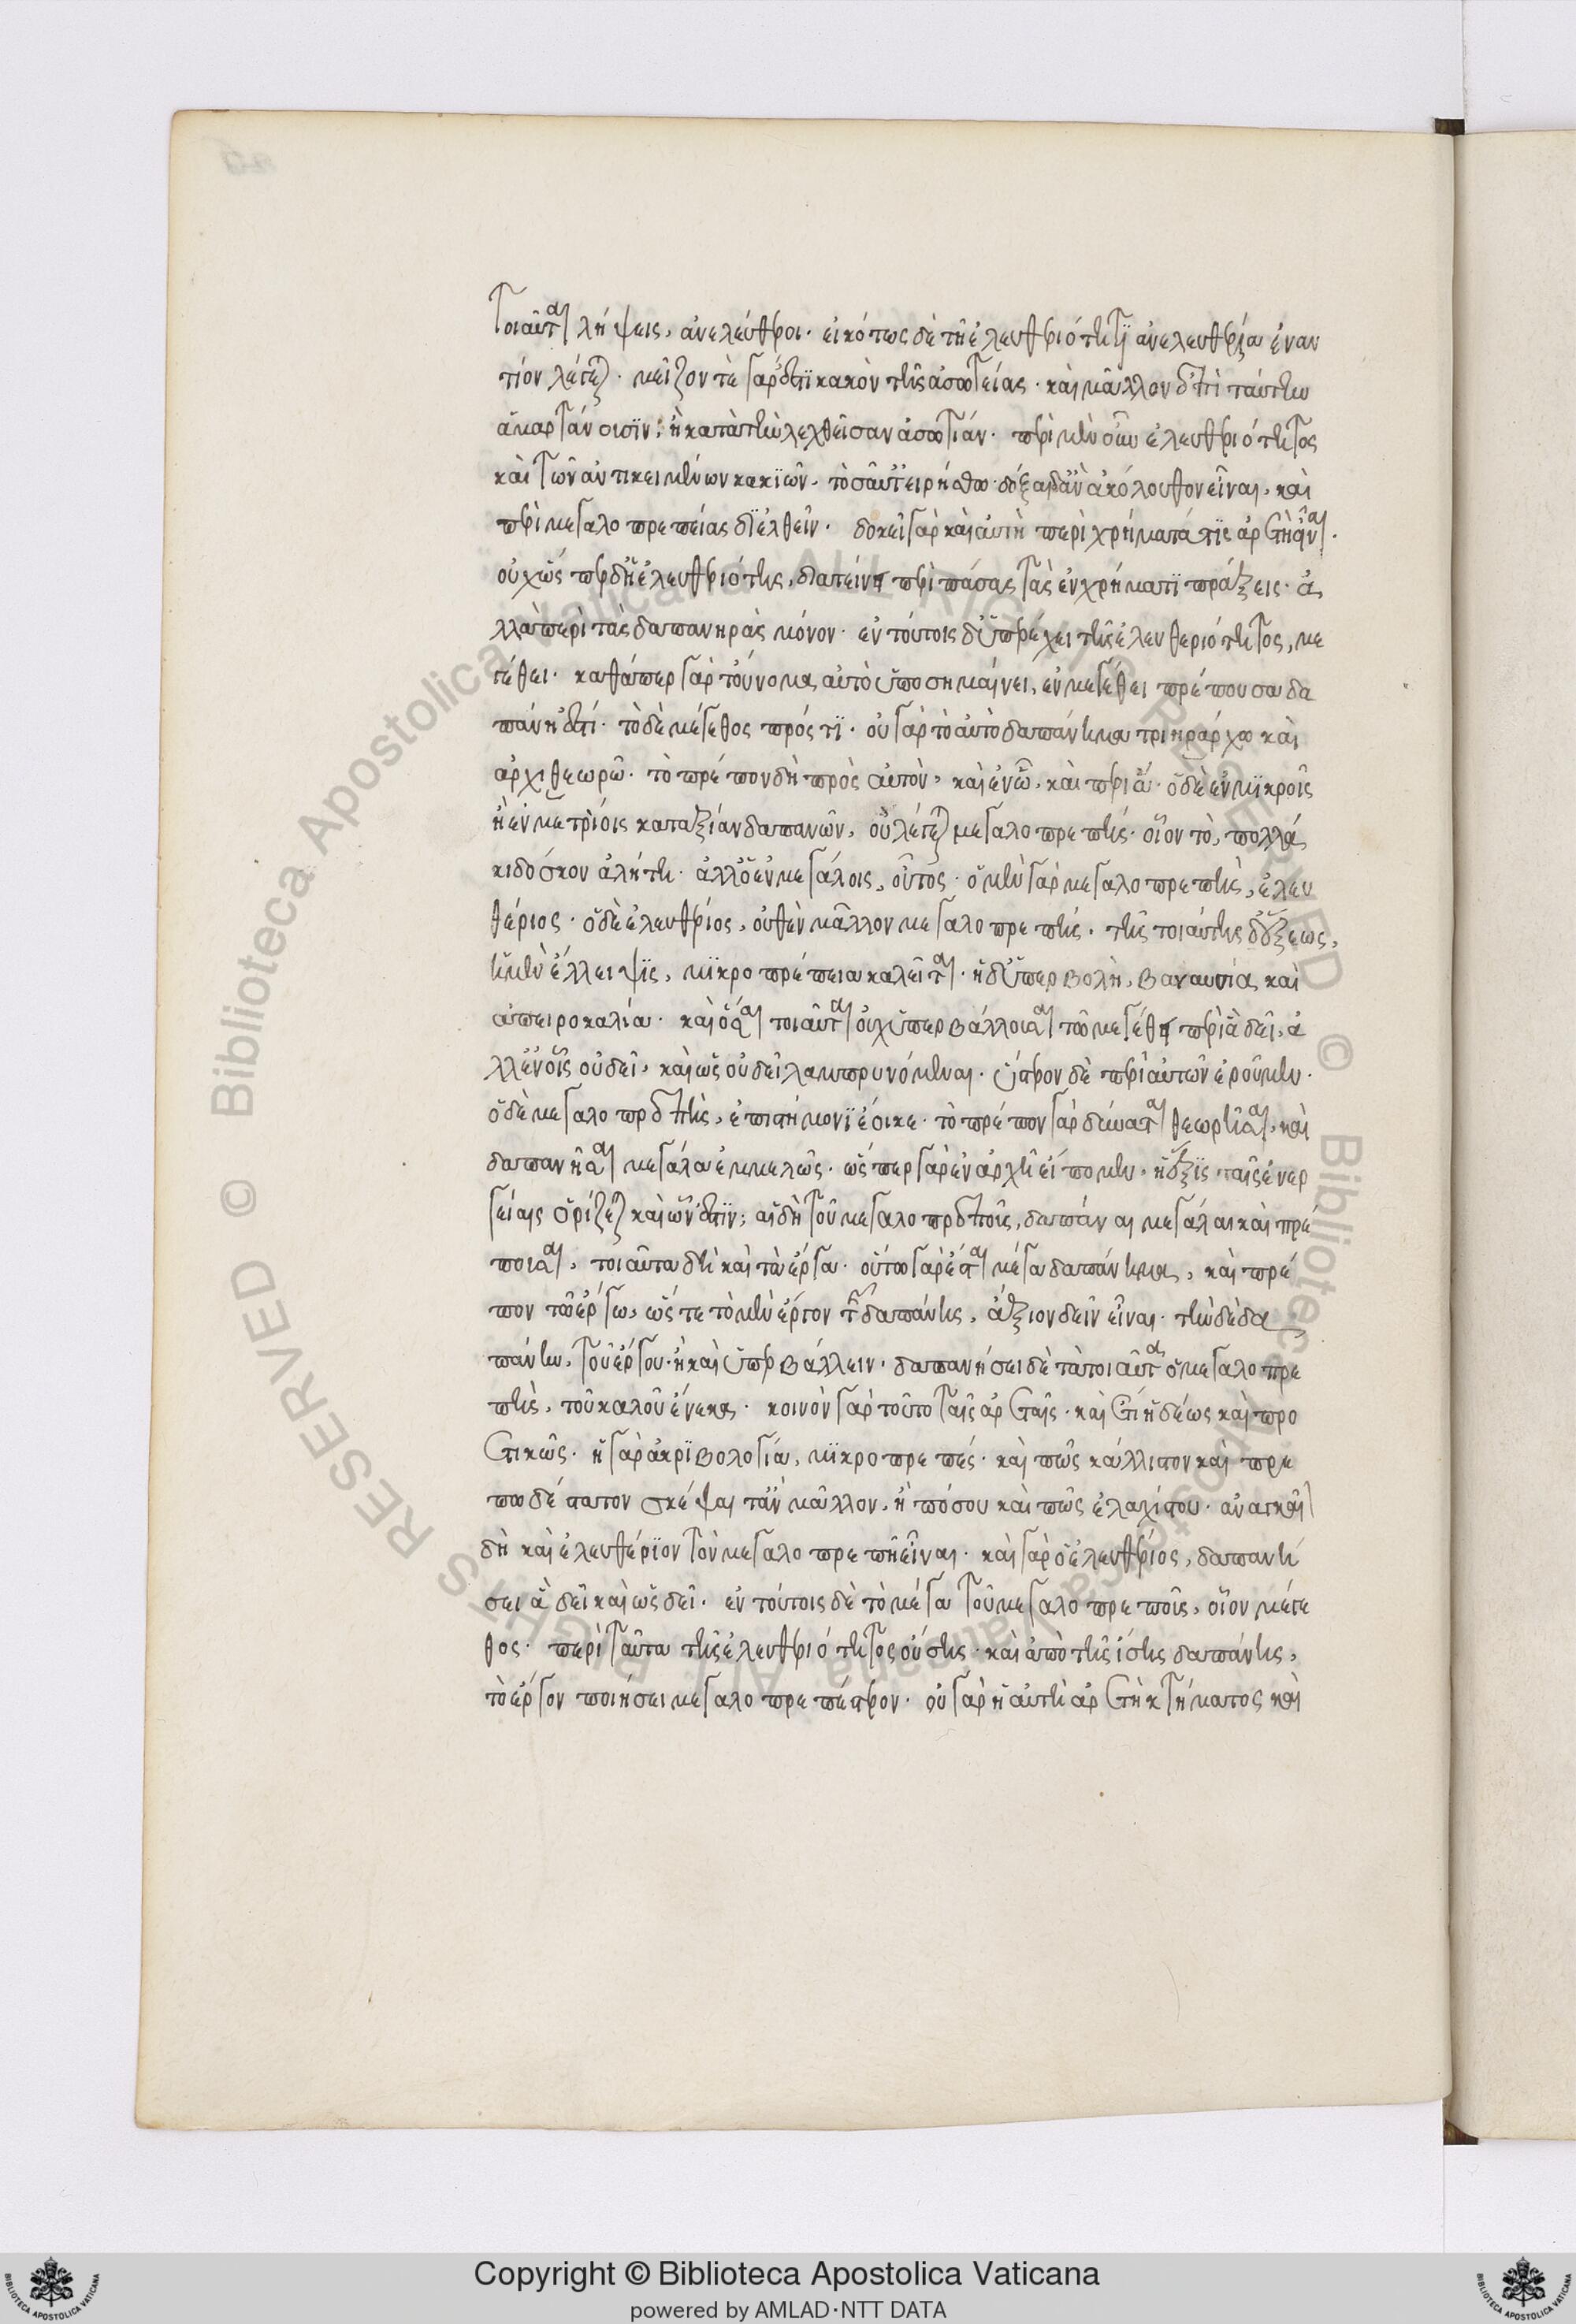 τοιαῦται λήψεις, ἀνελεύθεροι. εἰκότως δὲ τῇ ἐλευθεριότητι ἀνελευθερία ἐναν
τίον λέγεται. μεῖζον τὲ γάρ ἐστι κακὸν τῆς ἀσωτείας. καὶ μᾶλλον ἐπὶ ταύτην
ἁμαρτάνουσιν, ἢ κατὰ τὴν λεχθεῖσαν ἀσωτίαν. περὶ μὲν οὖν ἐλευθεριότητος
καὶ τῶν ἀντικειμένων κακιῶν, τοσαῦτ' εἰρήσθω. δόξαι δ' ἂν ἀκόλουθον εἶναι, καὶ
περὶ μεγαλοπρεπείας διελθεῖν. δοκεῖ γὰρ καὶ αὐτὴ περὶ χρήματά τις ἀρετὴ εἶναι.
οὐχ ὥσπερ δ' ἡ ἐλευθεριότης, διατείνει περὶ πάσας τὰς ἐν χρήμασι πράξεις. ἀ
λλὰ περὶ τὰς δαπανηρὰς μόνον. ἐν τούτοις δ' ὑπερέχει τῆς ἐλευθεριότητος, με
γέθει. καθάπερ γὰρ τοὔνομα αὐτὸ ὑποσημαίνει, ἐν μεγέθει πρέπουσα δα
πάνη ἐστί. τὸ δὲ μέγεθος πρός τι. οὐ γὰρ τὸ αὐτὸ δαπάνημα τριηράρχω καὶ
ἀρχιθεωρῶ. τὸ πρέπον δὴ πρὸς αὐτὸν, καὶ ἐν ὧ, καὶ περὶ ἅ. ὁ δὲ ἐν μικροῖς
ἢ ἐν μετρίοις κατ' ἀξίαν δαπανῶν, οὐ λέγεται μεγαλοπρεπής. οἷον τὸ, πολλά
κι δόσκον ἀλήτη. ἀλλ' ὁ ἐν μεγάλοις, οὗτος. ὁ μὲν γὰρ μεγαλοπρεπὴς, ἐλευ
θέριος. ὁ δὲ ἐλευθέριος, οὐθὲν μᾶλλον μεγαλοπρεπής. τῆς τοιαύτης δ' ἕξεως,
ἡ μὲν ἔλλειψις, μικροπρέπεια καλεῖται. ἡ δ' ὑπερβολὴ, βαναυσία καὶ
ἀπειροκαλία. καὶ ὅσαι τοιαῦται οὐχ ὑπερβάλλουσαι τῶ μεγέθει περὶ ἃ δεῖ, ἀ
λλ' ἐν οἷς οὐ δεῖ, καὶ ὡς οὐ δεῖ λαμπρυνόμεναι. ὕστερον δὲ περὶ αὐτῶν ἐροῦμεν.
ὁ δὲ μεγαλοπρεπὴς, ἐπιστήμονι ἔοικε. τὸ πρέπον γὰρ δύναται θεωρῆσαι, καὶ
δαπανῆσαι μεγάλα ἐμμελῶς. ὥσπερ γὰρ ἐν ἀρχῆ εἴπομεν, ἡ ἕξις ταῖς ἐνερ
γείαις ὁρίζεται καὶ ὧν ἐστιν. αἱ δὴ τοῦ μεγαλοπρεποῦς, δαπάναι μεγάλαι καὶ πρέ
πουσαι, τοιαῦτα δὴ καὶ τὰ ἔργα. οὕτω γὰρ ἔσται μέγα δαπάνημα, καὶ πρέ
πον τῶ ἔργω, ὥστε τὸ μὲν ἔργον τῆς δαπάνης, ἄξιον δεῖν εἶναι. τὴν δὲ δα
πάνην, τοῦ ἔργου. ἢ καὶ ὑπερβάλλειν. δαπανήσει δὲ τὰ τοιαῦτα ὁ μεγαλοπρε
πὴς, τοῦ καλοῦ ἕνεκα. κοινὸν γὰρ τοῦτο ταῖς ἀρεταῖς. καὶ ἔτι ἡδέως καὶ προ
ετικῶς. ἡ γὰρ ἀκριβολογία, μικροπρεπές. καὶ πῶς κάλλιστον καὶ πρε
πωδέστατον σκέψαιτ' ἂν μᾶλλον, ἢ πόσου καὶ πῶς ἐλαχίστου. ἀναγκαῖ
δὴ καὶ ἐλευθέριον τὸν μεγαλοπρεπῆ εἶναι. καὶ γὰρ ὁ ἐλευθέριος, δαπανή
σει ἃ δεῖ καὶ ὡς δεῖ. ἐν τούτοις δὲ τὸ μέγα τοῦ μεγαλοπρεποῦς, οἷον μέγε
θος. περὶ ταῦτα τῆς ἐλευθεριότητος οὔσης. καὶ ἀπὸ τῆς ἴσης δαπάνης,
τὸ ἔργον ποιήσει μεγαλοπρεπέστερον. οὐ γὰρ ἡ αὐτὴ ἀρετὴ κτήματος καὶ
Copyright © Biblioteca Apostolica Vaticana
powered by AMLAD·NTT DATA